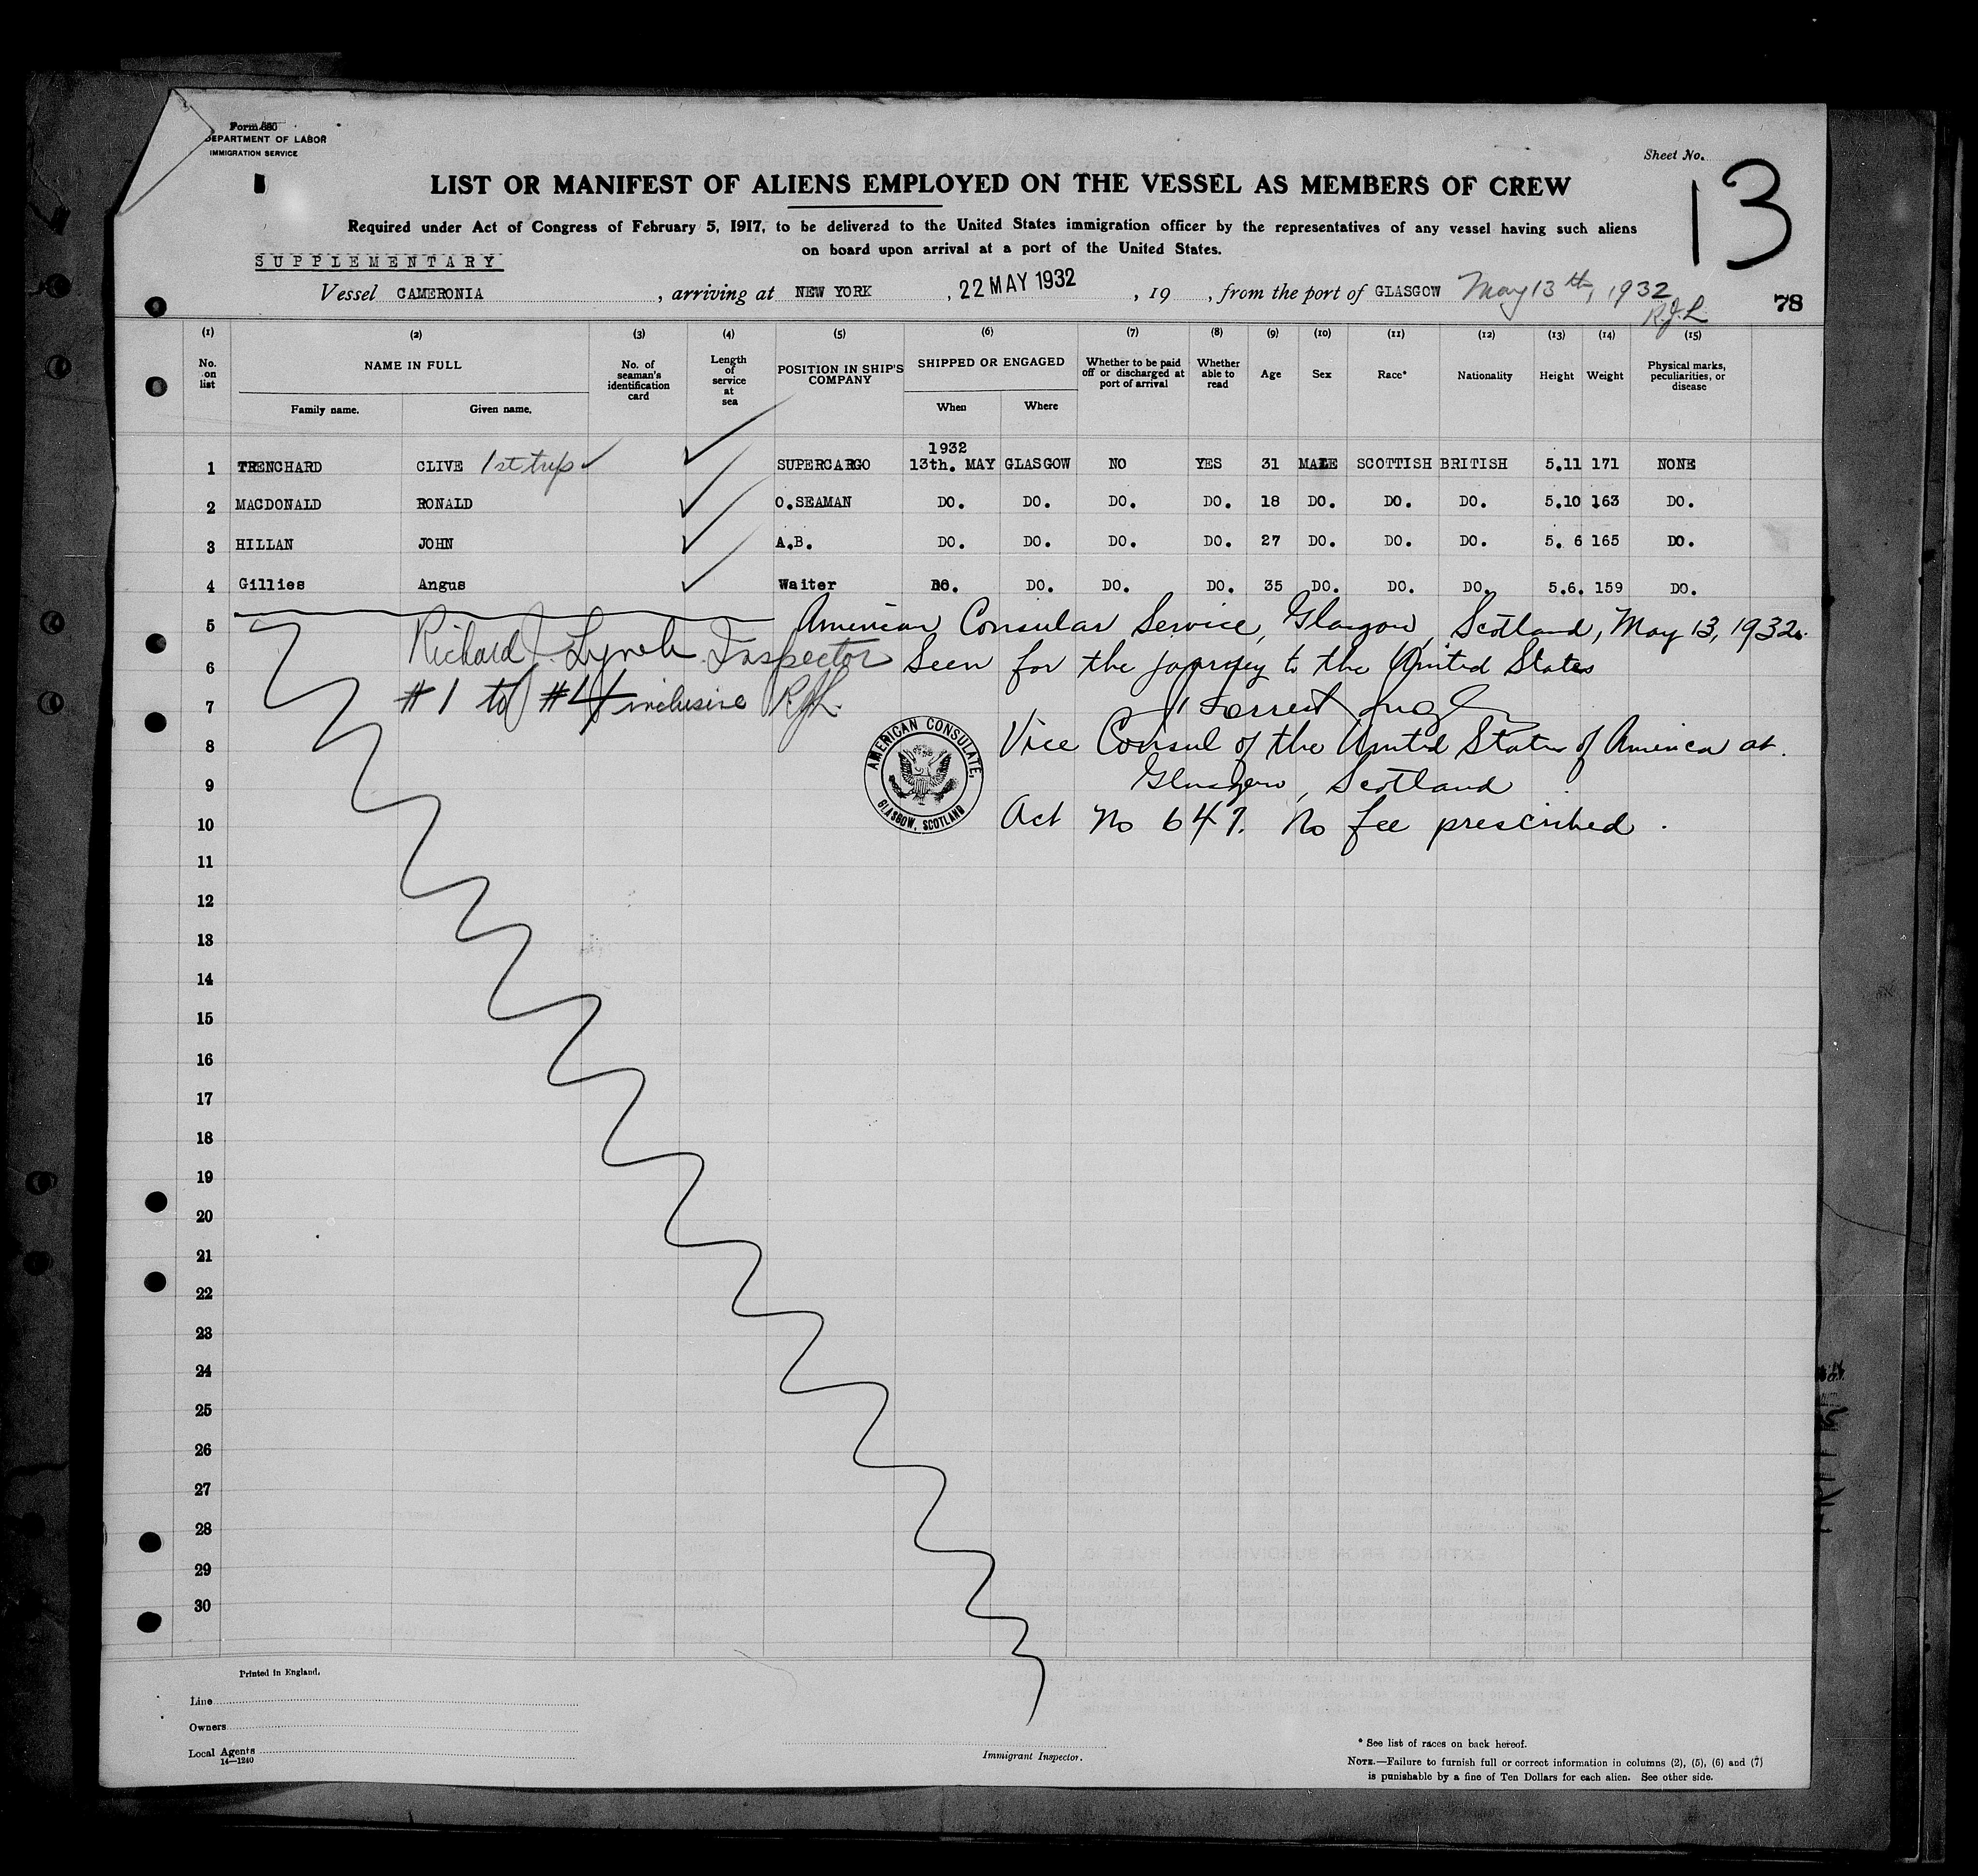 Form 680
DEPARTMENT OF LABOR
IMMIGRATION SERVICE
Sheet No. 13
LIST OR MANIFEST OF ALIENS EMPLOYED ON THE VESSEL AS MEMBERS OF CREW
Required under Act of Congress of February 5, 1917, to be delivered to the United States immigration officer by the representatives of any vessel having such aliens
on board upon arrival at a port of the United States.
SUPPLEMENTARY
Vessel CAMERONIA, arriving at NEW YORK, 22 MAY 1932, 19, from the port of GLASGOW May 13th, 1932
R.J.L. 78
(1) (2) (3) (4) (5) (6) (7) (8) (9) (10) (11) (12) (13) (14) (15)
No. on list NAME IN FULL No. of seaman's identification card Length of service at sea POSITION IN SHIP'S COMPANY SHIPPED OR ENGAGED Whether to be paid off or discharged at port of arrival Whether able to read Age Sex Race* Nationality Height Weight Physical marks, peculiarities, or disease
Family name. Given name. When Where
1932
1 TRENCHARD CLIVE 1st trip SUPERCARGO 13th. MAY GLASGOW NO YES 31 MALE SCOTTISH BRITISH 5.11 171 NONE
2 MACDONALD RONALD O.SEAMAN DO. DO. DO. DO. 18 DO. DO. DO. 5.10 163 DO.
3 HILLAN JOHN A.B. DO. DO. DO. DO. 27 DO. DO. DO. 5. 6 165 DO.
4 Gillies Angus Waiter DO. DO. DO. DO. 35 DO. DO. DO. 5.6. 159 DO.
5 American Consular Service, Glasgow, Scotland, May 13, 1932.
6 Richard J. Lynch Inspector Seen for the journey to the United States
7 #1 to #4 inclusive R.J.L. Forrest
8 Vice Consul of the United States of America at
9 Glasgow, Scotland
10 Act No 647. No fee prescribed.
AMERICAN CONSULATE,
GLASGOW, SCOTLAND
11
12
13
14
15
16
17
18
19
20
21
22
23
24
25
26
27
28
29
30
Printed in England.
Line
Owners
Local Agents
14—1240
Immigrant Inspector.
* See list of races on back hereof.
NOTE.—Failure to furnish full or correct information in columns (2), (5), (6) and (7)
is punishable by a fine of Ten Dollars for each alien. See other side.